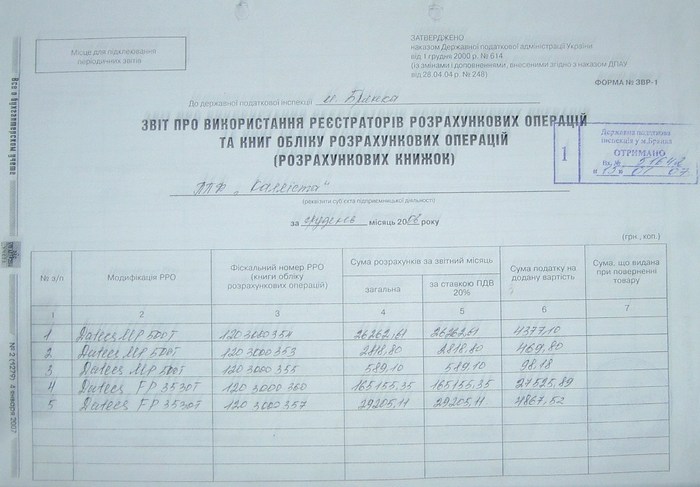 ЗАТВЕРДЖЕНО
наказом Державної податкової адміністрації України
від 1 грудня 2000 р. № 614
(із змінами і доповненнями, внесеними згідно з наказом ДПАУ
від 28.04.04 р. № 248)
Місце для підклеювання
періодичних звітів
ФОРМА № ЗВР-1
До державної податкової інспекції м. Брянка
ЗВІТ ПРО ВИКОРИСТАННЯ РЕЄСТРАТОРІВ РОЗРАХУНКОВИХ ОПЕРАЦІЙ
ТА КНИГ ОБЛІКУ РОЗРАХУНКОВИХ ОПЕРАЦІЙ
(РОЗРАХУНКОВИХ КНИЖОК)
1
Державна податкова
інспекція у м.Брянка
ОТРИМАНО
Вх. №
" 15 " 01 07
ППФ „Калліста"
(реквізити суб'єкта підприємницької діяльності)
за грудень місяць 2006 року
(грн., коп.)
№ з/п Модифікація РРО Фіскальний номер РРО (книги обліку розрахункових операцій) Сума розрахунків за звітний місяць Сума податку на додану вартість Сума, що видана при поверненні товару
загальна за ставкою ПДВ 20%
1 2 3 4 5 6 7
1 Datecs MP 500T 1203000354 26262,61 26262,61 4377,10
2 Datecs MP 500T 1203000353 2818,80 2818,80 469,80
3 Datecs MP 500T 1203000355 589,10 589,10 98,18
4 Datecs FP 3530T 1203000360 165155,35 165155,35 27525,89
5 Datecs FP 3530T 1203000357 29205,11 29205,11 4867,52
Все о бухгалтерском учете
№ 2 (1279) 4 января 2007